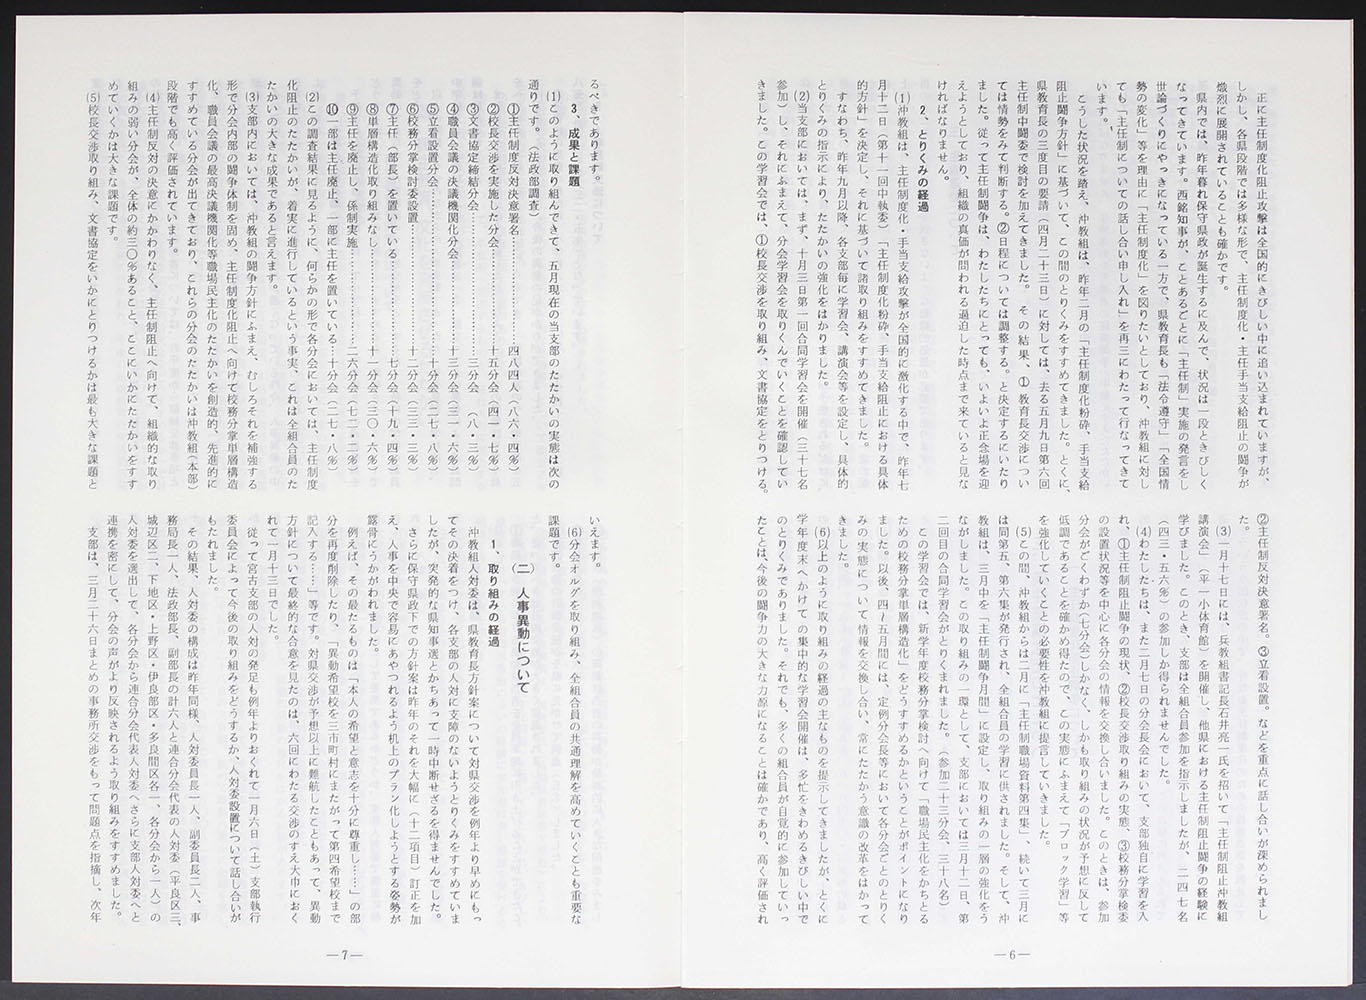 正に主任制度化阻止攻撃は全国的にきびしい中に追い込まれていますが、
しかし、各県段階では多様な形で、主任制度化・主任手当支給阻止の闘争が
熾烈に展開されていることも確かです。
県内では、昨年暮れ保守県政が誕生するに及んで、状況は一段ときびしく
なってきています。西銘知事が、ことあるごとに「主任制」実施の発言をし
世論づくりにやっきになっている一方で、県教育長も「法令遵守」「全国情
勢の変化」等を理由に「主任制度化」を図りたいとしており、沖教組に対し
ても「主任制についての話し合い申し入れ」を再三にわたって行なってきて
います。
こうした状況を踏え、沖教組は、昨年二月の「主任制度化粉砕、手当支給
阻止闘争方針」に基づいて、この間のとりくみをすすめてきました。とくに、
県教育長の三度目の要請(四月二十三日)に対しては、去る五月九日第六回
主任制中闘委で検討を加えてきました。その結果、①教育長交渉につい
ては情勢をみて判断する。②日程については調整する。と決定するにいたり
ました。従って主任制闘争は、わたしたちにとっても、いよいよ正念場を迎
えようとしており、組織の真価が問われる過迫した時点まで来ていると見な
ければなりません。
2、とりくみの経過
(1)沖教組は、主任制度化・手当支給攻撃が全国的に激化する中で、昨年七
月十二日(第十一回中執委)「主任制度化粉砕、手当支給阻止における具体
的方針」を決定し、それに基づいて諸取り組みをすすめてきました。
すなわち、昨年九月以降、各支部毎に学習会、講演会等を設定し、具体的
とりくみの指示により、たたかいの強化をはかりました。
(2)当支部においては、まず、十月三日第一回合同学習会を開催(三十七名
参加)し、それにふまえて、分会学習会を取りくんでいくことを確認してい
きました。この学習会では、①校長交渉を取り組み、文書協定をとりつける。
②主任制反対決意署名。③立看設置。などを重点に話し合いが深められまし
た。
(3)一月十七日には、兵教組書記長石井亮一氏を招いて「主任制阻止沖教組
講演会」(平一小体育館)を開催し、他県における主任制阻止闘争の経験に
学びました。このとき、支部は全組合員参加を指示しましたが、二四七名
(四三・五六%)の参加しか得られませんでした。
(4)わたしたちは、また二月七日の分会長会において、支部独自に学習を入
れ、①主任制阻止闘争の現状、②校長交渉取り組みの実態、③校務分掌検委
の設置状況等を中心に各分会の情報を交換し合いました。このときは、参加
分会がごくわずか(七分会)しかなく、しかも取り組みの状況が予想に反して
低調であることを確かめ得たので、この実態にふまえて「ブロック学習」等
を強化していくことの必要性を沖教組に提言していきました。
(5)この間、沖教組からは二月に「主任制職場資料第四集」、続いて三月に
は同第五、第六集が発行され、全組合員の学習に供されました。そして、沖
教組は、三月中を「主任制闘争月間」に設定し、取り組みの一層の強化をう
ながしました。この取り組みの一環として、支部においては三月十二日、第
二回目の合同学習会がとりくまれました。(参加二十三分会、三十八名)
この学習会では、新学年度校務分掌検討へ向けて「職場民主化をかちとる
ための校務分掌単層構造化」をどうすすめるかということがポイントになり
ました。以後、四~五月間には、定例分会長等において各分会ごとのとりく
みの実態について情報を交換し合い、常にたたかう意識の改革をはかって
きました。
(6)以上のように取り組みの経過の主なものを提示してきましたが、とくに
学年度末へかけての集中的な学習会開催は、多忙をきわめるきびしい中で
のとりくみでありました。それでも、多くの組合員が自覚的に参加していっ
たことは、今後の闘争力の大きな力源になることは確かであり、高く評価され
—6—
るべきであります。
3、成果と課題
(1)このように取り組んできて、五月現在の当支部のたたかいの実態は次の
通りです。(法政部調査)
①主任制度反対決意署名………四八四人(八六・四%)
②校長交渉を実施した分会………十五分会(四一・七%)
③文書協定締結分会………三分会(八・三%)
④職員会議の決議機関化分会………十三分会(三一・六%)
⑤立看設置分会………十分会(二七・八%)
⑥校務分掌検討委設置………十二分会(三三・三%)
⑦主任(部長)を置いている………七分会(十九・四%)
⑧単層構造化取り組みなし………十一分会(三〇・六%)
⑨主任を廃止し、係制実施………二六分会(七二・二%)
⑩一部は主任廃止、一部に主任を置いている…十分会(二七・八%)
(2)この調査結果に見るように、何らかの形で各分会においては、主任制度
化阻止のたたかいが、着実に進行しているという事実、これは全組合員のた
たかいの大きな成果であると言えます。
(3)支部内においては、沖教組の闘争方針にふまえ、むしろそれを補強する
形で分会内部の闘争体制を固め、主任制度化阻止へ向けて校務分掌単層構造
化、職員会議の最高決議機関化等職場民主化のたたかいを創造的、先進的に
すすめている分会が出てきており、これらの分会のたたかいは沖教組(本部)
段階でも高く評価されています。
(4)主任制反対の決意にかかわりなく、主任制阻止へ向けて、組織的な取り
組みの弱い分会が、全体の約三〇%あること、ここにいかにたたかいをすす
めていくかは大きな課題です。
(5)校長交渉取り組み、文書協定をいかにとりつけるかは最も大きな課題と
いえます。
(6)分会オルグを取り組み、全組合員の共通理解を高めていくことも重要な
課題です。
(二) 人事異動について
1、取り組みの経過
沖教組人対委は、県教育長方針案について対県交渉を例年より早めにもっ
てその決着をつけ、各支部の人対に支障のないようとりくみをすすめていま
したが、突発的な県知事選とかちあって一時中断せざるを得ませんでした。
さらに保守県政下での方針案は昨年のそれを大幅に(十二項目)訂正を加
え、人事を中央で容易にあやつれるよう机上のプラン化しようとする姿勢が
露骨にうかがわれました。
例えば、その最たるものは「本人の希望と意志を十分に尊重し……」の部
分を再度削除したり、「異動希望校を三市町村にまたがって第四希望校まで
記入する……」等です。対県交渉が予想以上に難航したこともあって、異動
方針について最終的な合意を見たのは、六回にわたる交渉のすえ大巾におく
れて一月十三日でした。
従って宮古支部の人対の発足も例年よりおくれて一月六日(土)支部執行
委員会によって今後の取り組みをどうするか、人対委設置について話し合いが
もたれました。
その結果、人対委の構成は昨年同様、人対委員長一人、副委員長二人、事
務局長一人、法政部長、副部長の計六人と連合分会代表の人対委(平良区三、
城辺区二、下地区・上野区・伊良部区・多良間区各一、各分会から一人)の
人対委を選出して、各分会から連合分会代表人対委へ、さらに支部人対委へと
連携を密にして、分会の声がより反映されるよう取り組みをすすめました。
支部は、三月二十六日まとめの事務所交渉をもって問題点を指摘し、次年
—7—